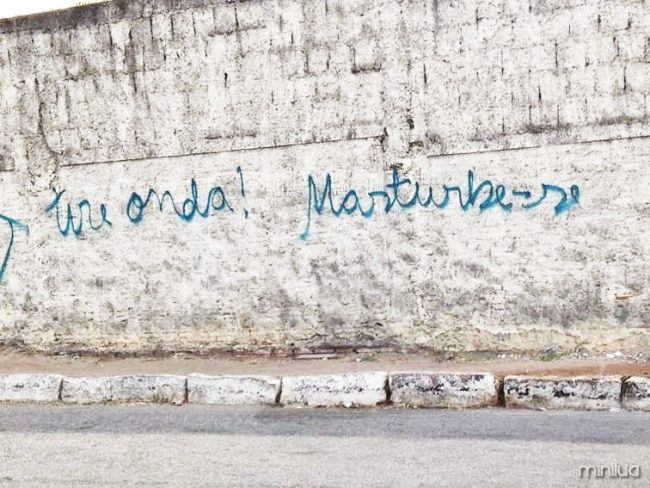 tire onda! Masturbe-se
minilua